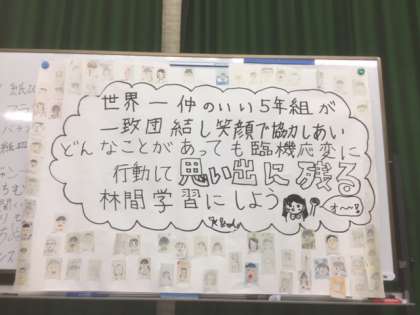 世界一仲のいい5年組が
一致団結し笑顔で協力しあい
どんなことがあっても臨機応変に
行動して思い出に残る
林間学習にしよう
オ〜!!
紙皿
紙皿